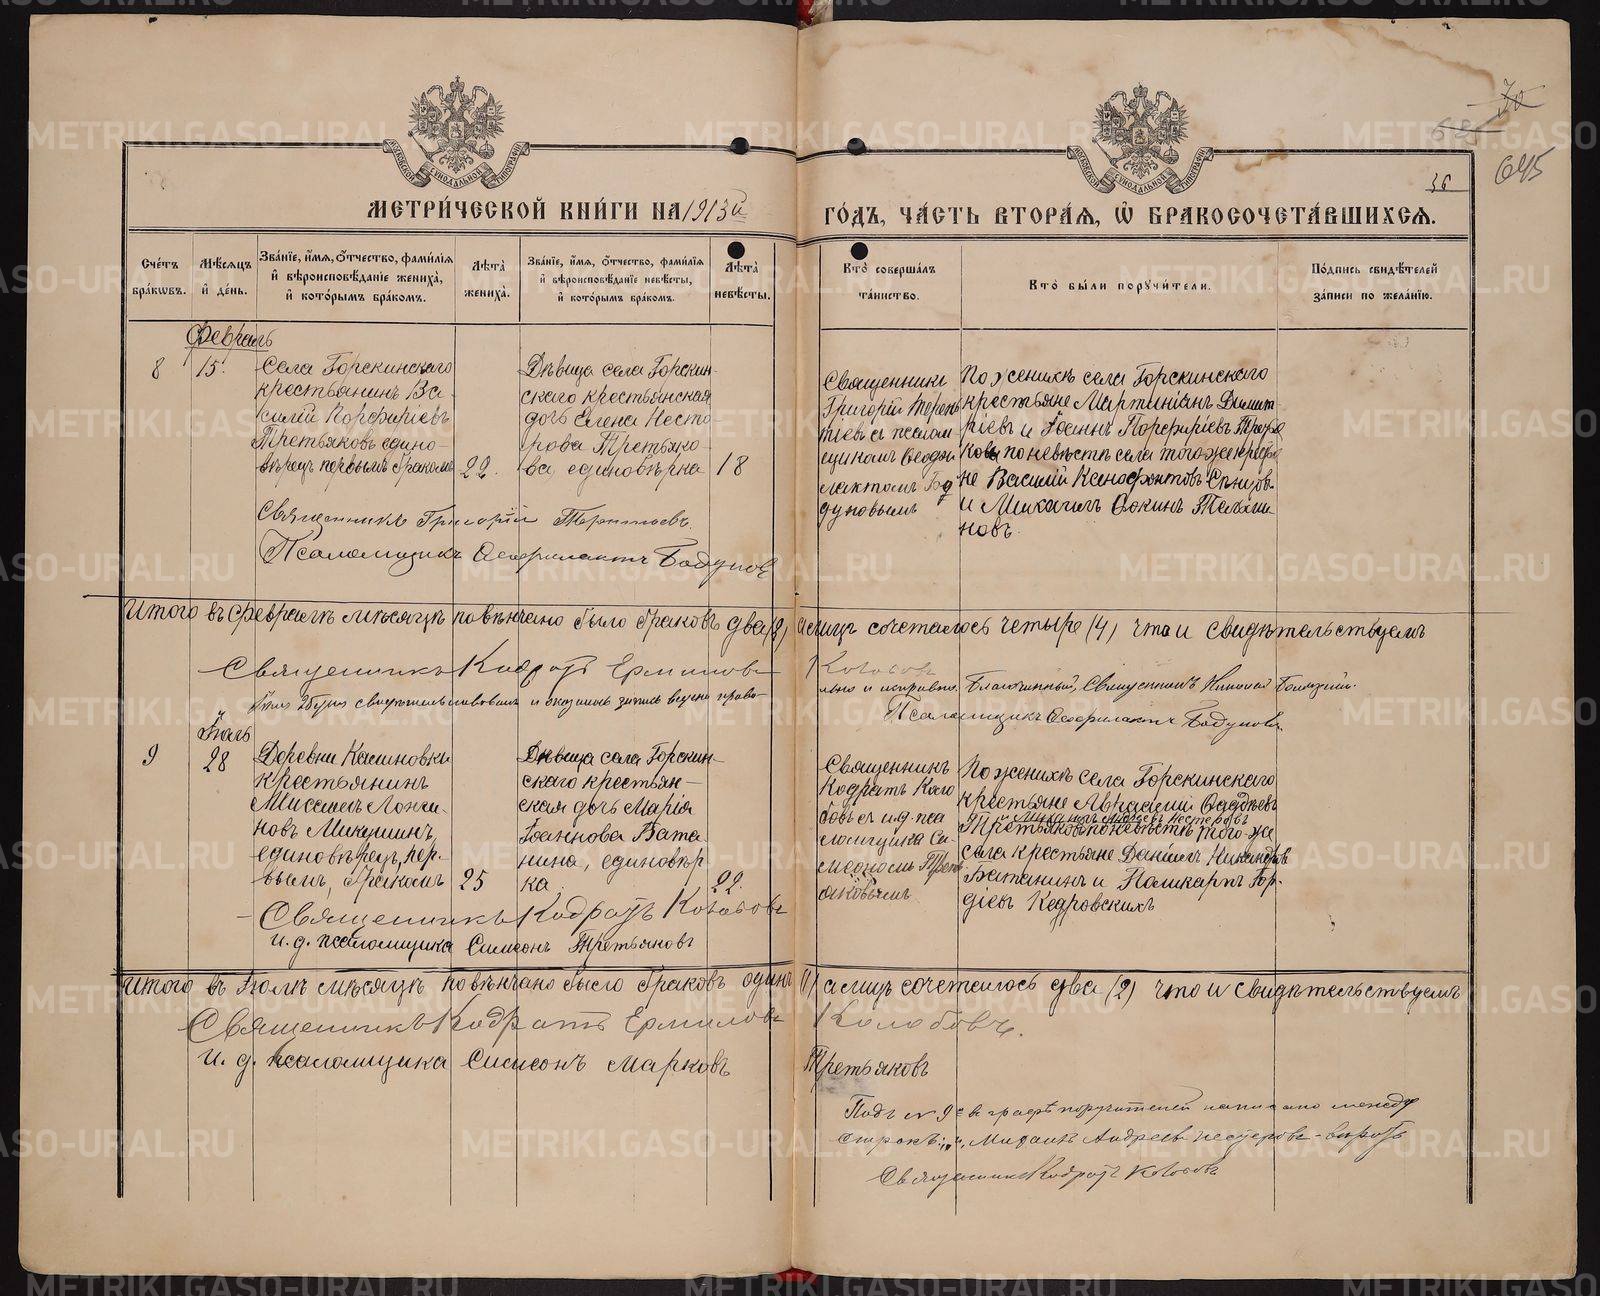 METRIKI.GASO-URAL.RU
70
645
36
МЕТРИ́ЧЕСКОЙ КНИ́ГИ НА 1913й
ГО́ДЪ, ЧА́СТЬ ВТОРА́Я, Ѽ БРАКОСОЧЕТА́ВШИХСЯ.
Сче́тъ бра́кѡвъ.
Мѣ́сяцъ и҆ де́нь.
Зва́нїе, и҆́мя, ѻ҆́тчество, фами́лїя и҆ вѣроисповѣ́данїе жениха̀, и҆ кото́рымъ бра́комъ.
Лѣ́та̀ жениха̀.
Зва́нїе, и҆́мя, ѻ҆́тчество, фами́лїя и҆ вѣроисповѣ́данїе невѣ́сты, и҆ кото́рымъ бра́комъ.
Лѣ́та̀ невѣ́сты.
Кто̀ соверша́лъ та́инство.
Кто̀ бы́ли порꙋчи́тели.
По́дпись свидѣ́телей за́писи по жела́нїю.
Февраль
8
15.
Села Горскинскаго
крестьянинъ Ва-
силій Порфиріевъ
Третьяковъ едино-
вѣрецъ первымъ бракомъ
22.
Дѣвица села Горскин-
скаго крестьянская
дочь Елена Несто-
рова Третьяко-
ва, единовѣрка
18
Священникъ
Григорій Терен-
тіевъ съ псалом-
щикомъ Феофи-
лактомъ Бо-
дуновымъ
По женихѣ села Горскинскаго
крестьяне Мартиніанъ Димит-
ріевъ и Іоаннъ Порфиріевъ Третья-
ковы по невѣстѣ села того же крестья-
не Василій Ксенофонтовъ
и Михаилъ Фокинъ
новъ.
Священникъ Григорій Терентьевъ.
Псаломщикъ Феофилактъ Бодуновъ
Итого въ февралѣ мѣсяцѣ повѣнчано было браковъ два (2) а лицъ сочеталось четыре (4), что и свидѣтельствуемъ
Священникъ Кодратъ Ермиловъ Колобовъ
вѣрна правильно и исправно. Благочинный, Священникъ Николай
Псаломщикъ Феофилактъ Бодуновъ.
Іюль
9
28
Деревни Калиновки
крестьянинъ
Логги-
новъ Микушинъ,
единовѣрецъ, пер-
вымъ, бракомъ
25
Дѣвица села Горскин-
скаго крестьян-
ская дочь Марія
Іоаннова Вата-
нина, единовѣр-
ка.
22.
Священникъ
Кодратъ Коло-
бовъ съ и.д. пса-
ломщика Си-
меономъ Треть-
яковымъ.
По женихѣ села Горскинскаго
крестьяне Аркадій Фаддѣевъ
Михаилъ Андреевъ Нестеровъ
Третьяковъ по невѣстѣ того-же
села крестьяне Даніилъ Никандровъ
Ватанинъ и Поликарпъ Гор-
діевъ Кедровскихъ
Священникъ Кодратъ Колобовъ
и. д. псаломщика Симеонъ Третьяковъ
Итого въ Іюлѣ мѣсяцѣ повѣнчано было браковъ одинъ (1) а лицъ сочеталось два (2) что и свидѣтельствуемъ
Священникъ Кодратъ Ермиловъ Колобовъ.
и. д. псаломщика Симеонъ Марковъ Третьяковъ
Подъ № 9 въ графѣ поручителей написано между
строкъ: „Михаилъ Андреевъ Нестеровъ - вѣрить
Священникъ Кодратъ Колобовъ